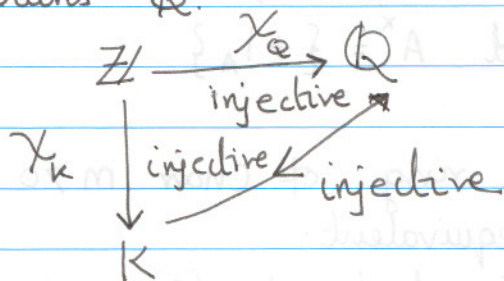 χ_ℚ
ℤ ℚ
injective
χ_K injective injective
K